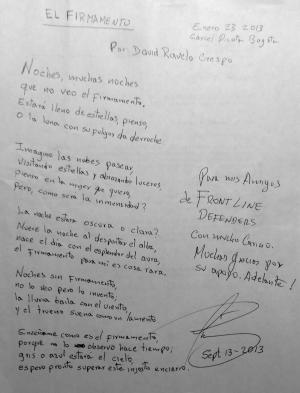 EL FIRMAMENTO
Enero 23 2013
Carcel Picota Bogotá
Por: David Ravelo Crespo
Noches, muchas noches
que no veo el firmamento.
Estará lleno de estrellas, pienso,
o la luna con su fulgor da derroche.
Imagino las nubes pasear,
visitando estrellas y abrazando luceros,
pienso en la mujer que quiero,
pero, como será la inmensidad?
La noche estara oscura o clara?
Muere la noche al despertar el alba,
nace el día con el esplendor del aura,
el firmamento para mi es cosa rara.
Noches sin firmamento,
no lo veo pero lo invento;
la lluvia baila con el viento
y el trueno suena como un lamento
como es el firmamento,
porque no lo observo hace tiempo;
gris o azul estará el cielo,
espero pronto superar este injusto encierro.
Para mis Amigos
de FRONT LINE
DEFENDERS
Con mucho Cariño.
Muchas Gracias por
su apoyo. Adelante!
Sept. 13-2013